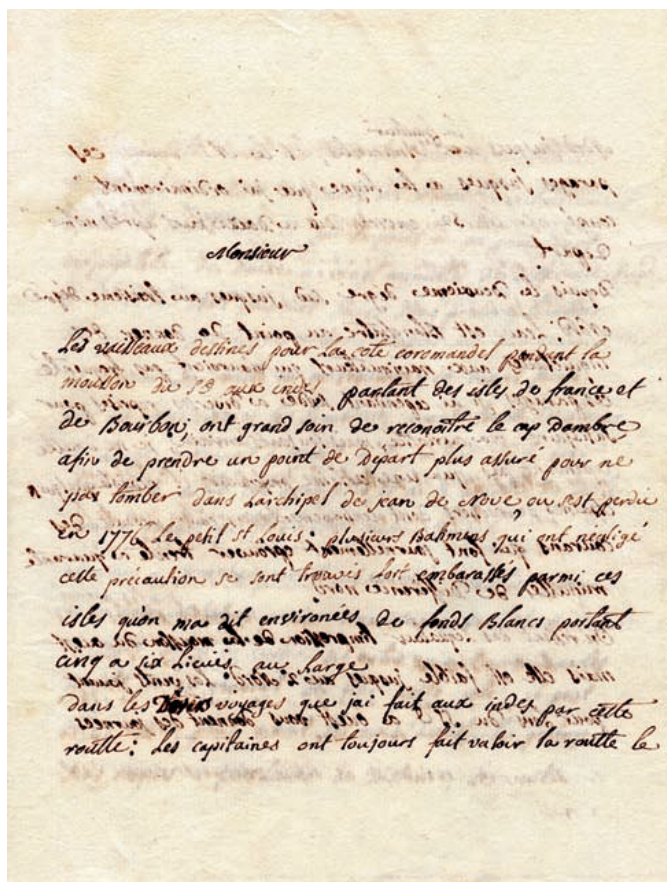 Monsieur
Les vaisseaux destinés pour la cote coromandel pendent la
mousson du S O aux indes partant des isles de france et
de Bourbon, ont grand soin de reconoitre le cap Dambre
afin de prendre un point de Départ plus assuré pour ne
pas tomber dans Larchipel de jean de Nove ou sest perdu
En 1776 Le petit st Louis; plusieurs Batimens qui ont négligé
cette précaution se sont trouvés fort embarassés parmi ces
isles qu'on ma dit environées de fonds Blancs portant
cinq a six Lieues au Large
dans les voyages que jai fait aux indes par cette
routte; Les capitaines ont toujours fait valoir la routte le